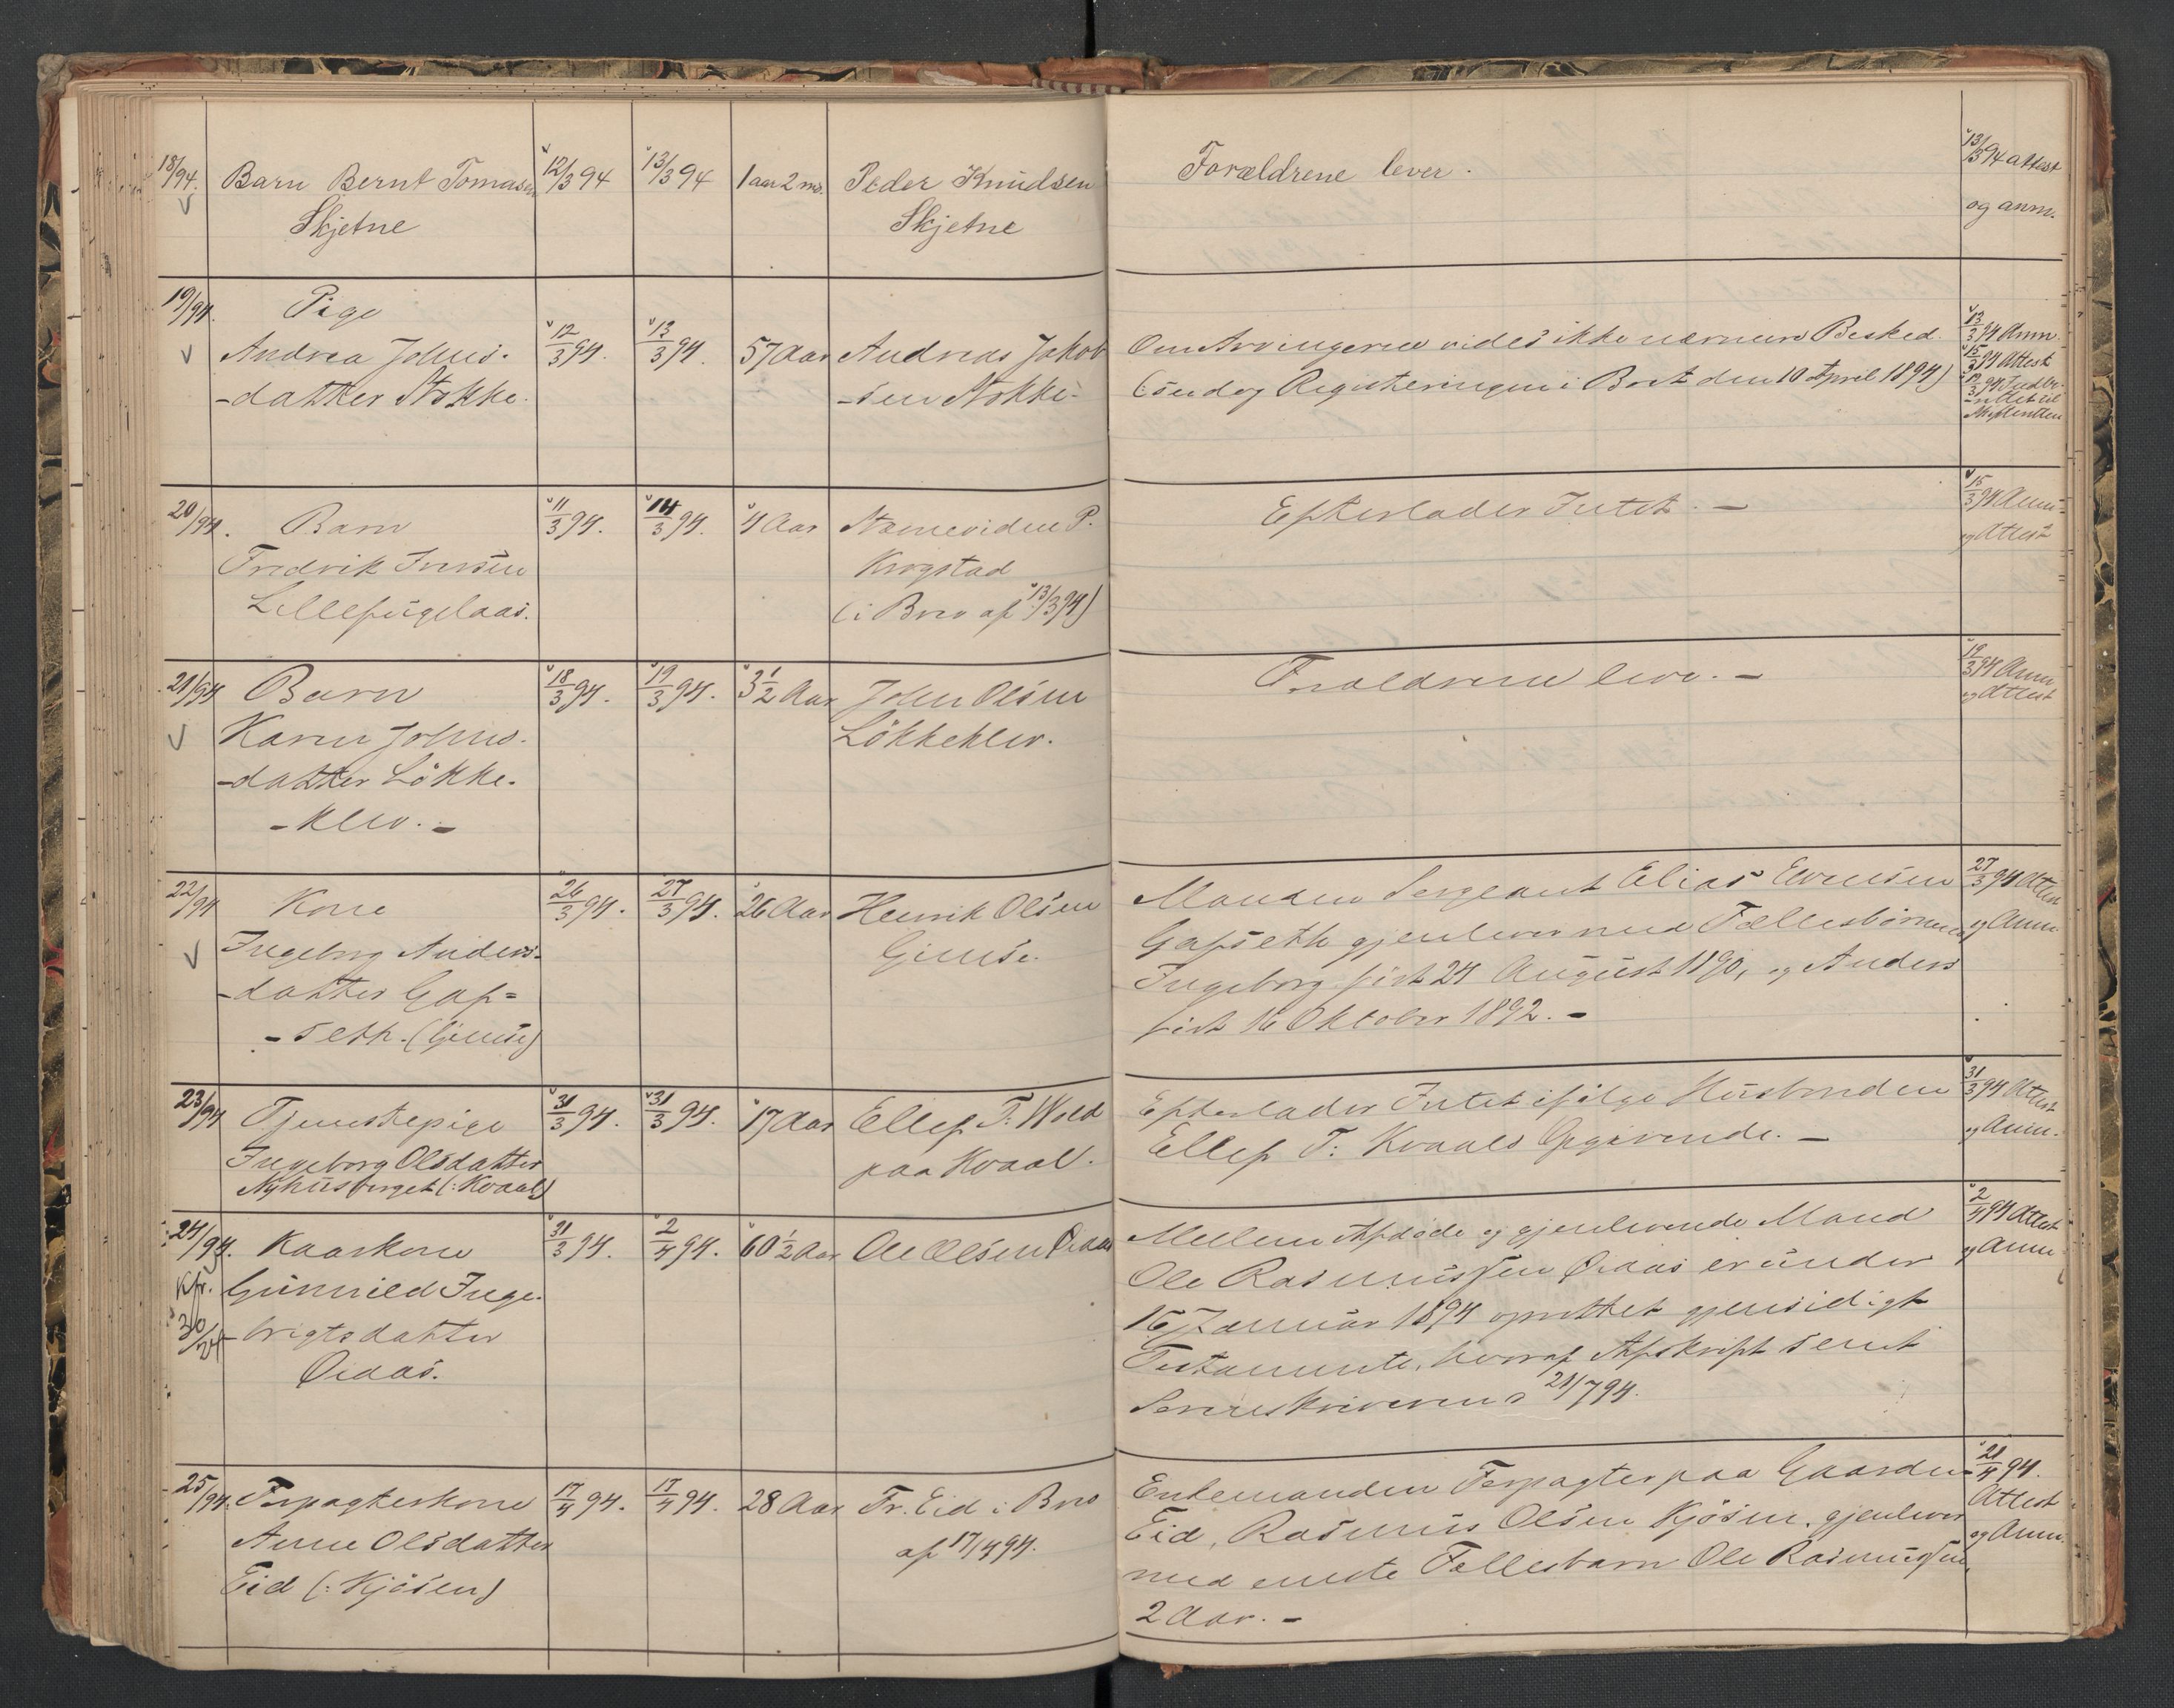 18/94. Barn Bernt Tomasen 12/3 94 13/3 94 1 aar 2 md. Peder Knudsen Forældrene lever. 13/3 94 attest
Skjetne Skjetne og anm.
19/94. Pige
Andrea Johns- 12/3 94. 13/3 94. 57 Aar Andreas Jakob Om Arvingerne vides ikke nærmere Besked. 13/3 94 Anm.
-datter Stokke. -sen Stokke- (send og Registeringen i Brev den 10 April 1894) 15/3 94 Attest
3 94 Indbe-
-rettet til
20/94. Barn 11/3 94. 14/3 94. 4 Aar Stevnevidne P. Efterlader Intet. – 15/3 94 Anm:
Fredrik Iversen Krogstad og Attest
Lillefuglaas. (i Brev af 13/3 94)
21/94 Barn 18/3 94. 19/3 94. 3 1/2 Aar John Olsen Forældrene leve. – 19/3 94 Anm
Karen Johns- Lökkeklev. og Attest
-datter Lökke-
-klev. –
22/94 Kone 26/3 94. 27/3 94. 26 Aar Henrik Olsen Manden Sergeant Elias Evensen 27/3 94 Attest
Ingeborg Anders- Gimse. Gafseth gjenlever med Fællesbørnene og Anm.
-datter Gaf= Ingeborg født 24 August 1890, og Anders
-seth. (Gimse) født 16 Oktober 1892. –
23/94 Tjenestepige 31/3 94. 31/3 94. 17 Aar Ellef T. Wold Efterlader Intet ifølge Husbonden 31/3 94 Attest
Ingeborg Olsdatter paa Kvaal. Ellef T. Kvaals Opgivende. – og Anm.
Nyhusberget (: Kvaal)
24/94. Kaarkone 31/3 94. 2/4 94. 60 1/2 Aar Ole Olsen Øiaas Mellem Afdøde og gjenlevende Mand 2/4 94 Attest
Kfr. Gunnild Inge- Ole Rasmussen Øiaas er under og Anm
30/24 -brigtsdatter 16 Januar 1894 oprettet gjensidigt
Øiaas. Testamente, hvoraf Afskrift sendt
Sorenskriveren 21/7 94.
25/94. Forpagterkone 17/4 94. 17/4 94. 28 Aar Fr. Eid i Brev Enkemanden Forpagter paa Gaarden 21/4 94.
Anne Olsdatter af 17/4 94. Eid, Rasmus Olsen Kjösen, gjenlever Attest
Eid (: Kjösen) med eneste Fællesbarn Ole Rasmussen, og Anm.
2 Aar. –